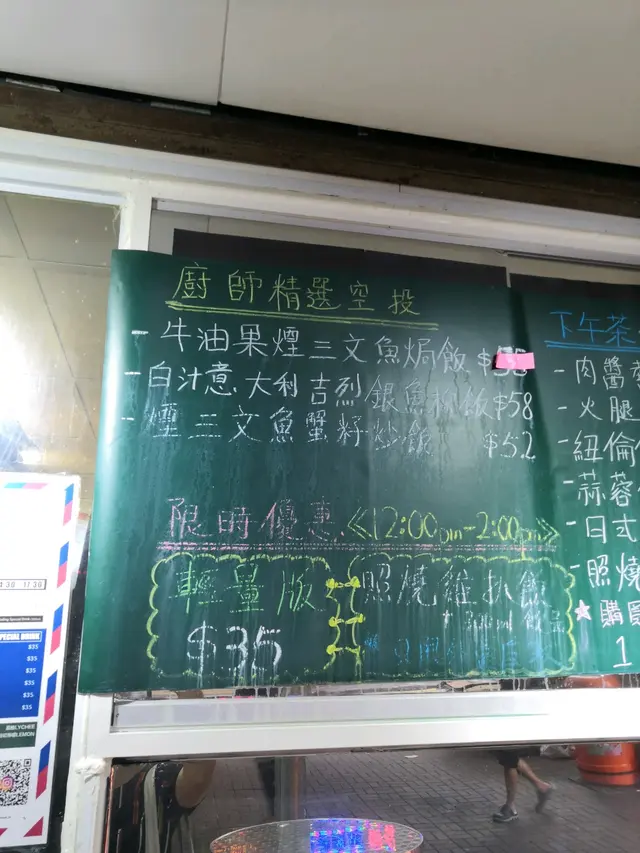 廚師精選空投
- 牛油果煙三文魚焗飯 $
- 白汁意大利吉列銀魚柳飯 $58
- 煙三文魚蟹籽炒飯 $52
限時優惠 《12:00pm-2:00pm》
輕量版
$35
照燒雞扒飯
下午茶
- 肉醬
- 火腿
- 紐倫
- 蒜蓉
- 日式
- 照燒
1
SPECIAL DRINK
$35
$35
$35
$35
$35
$35